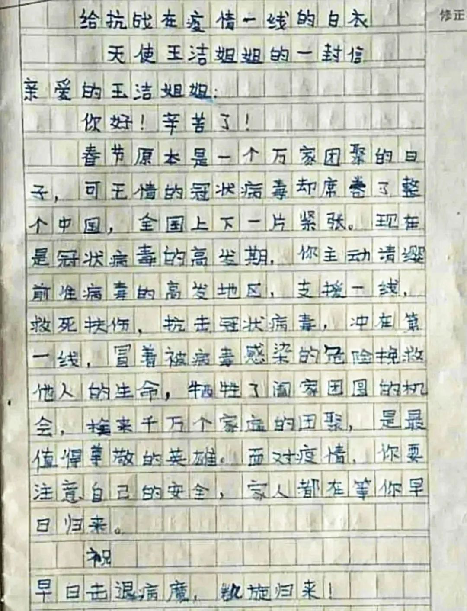 修正
给抗战在疫情一线的白衣
天使王洁姐姐的一封信
亲爱的王洁姐姐:
你好!辛苦了!
春节原本是一个万家团聚的日
子,可无情的冠状病毒却席卷了整
个中国,全国上下一片紧张。现在
是冠状病毒的高发期,你主动请缨
前往病毒的高发地区,支援一线,
救死扶伤,抗击冠状病毒,冲在第
一线,冒着被病毒感染的危险挽救
他人的生命,牺牲了阖家团圆的机
会,换来千万个家庭的团聚,是最
值得尊敬的英雄。面对疫情,你要
注意自己的安全,家人都在等你早
日归来。
祝
早日击退病魔,凯旋归来!